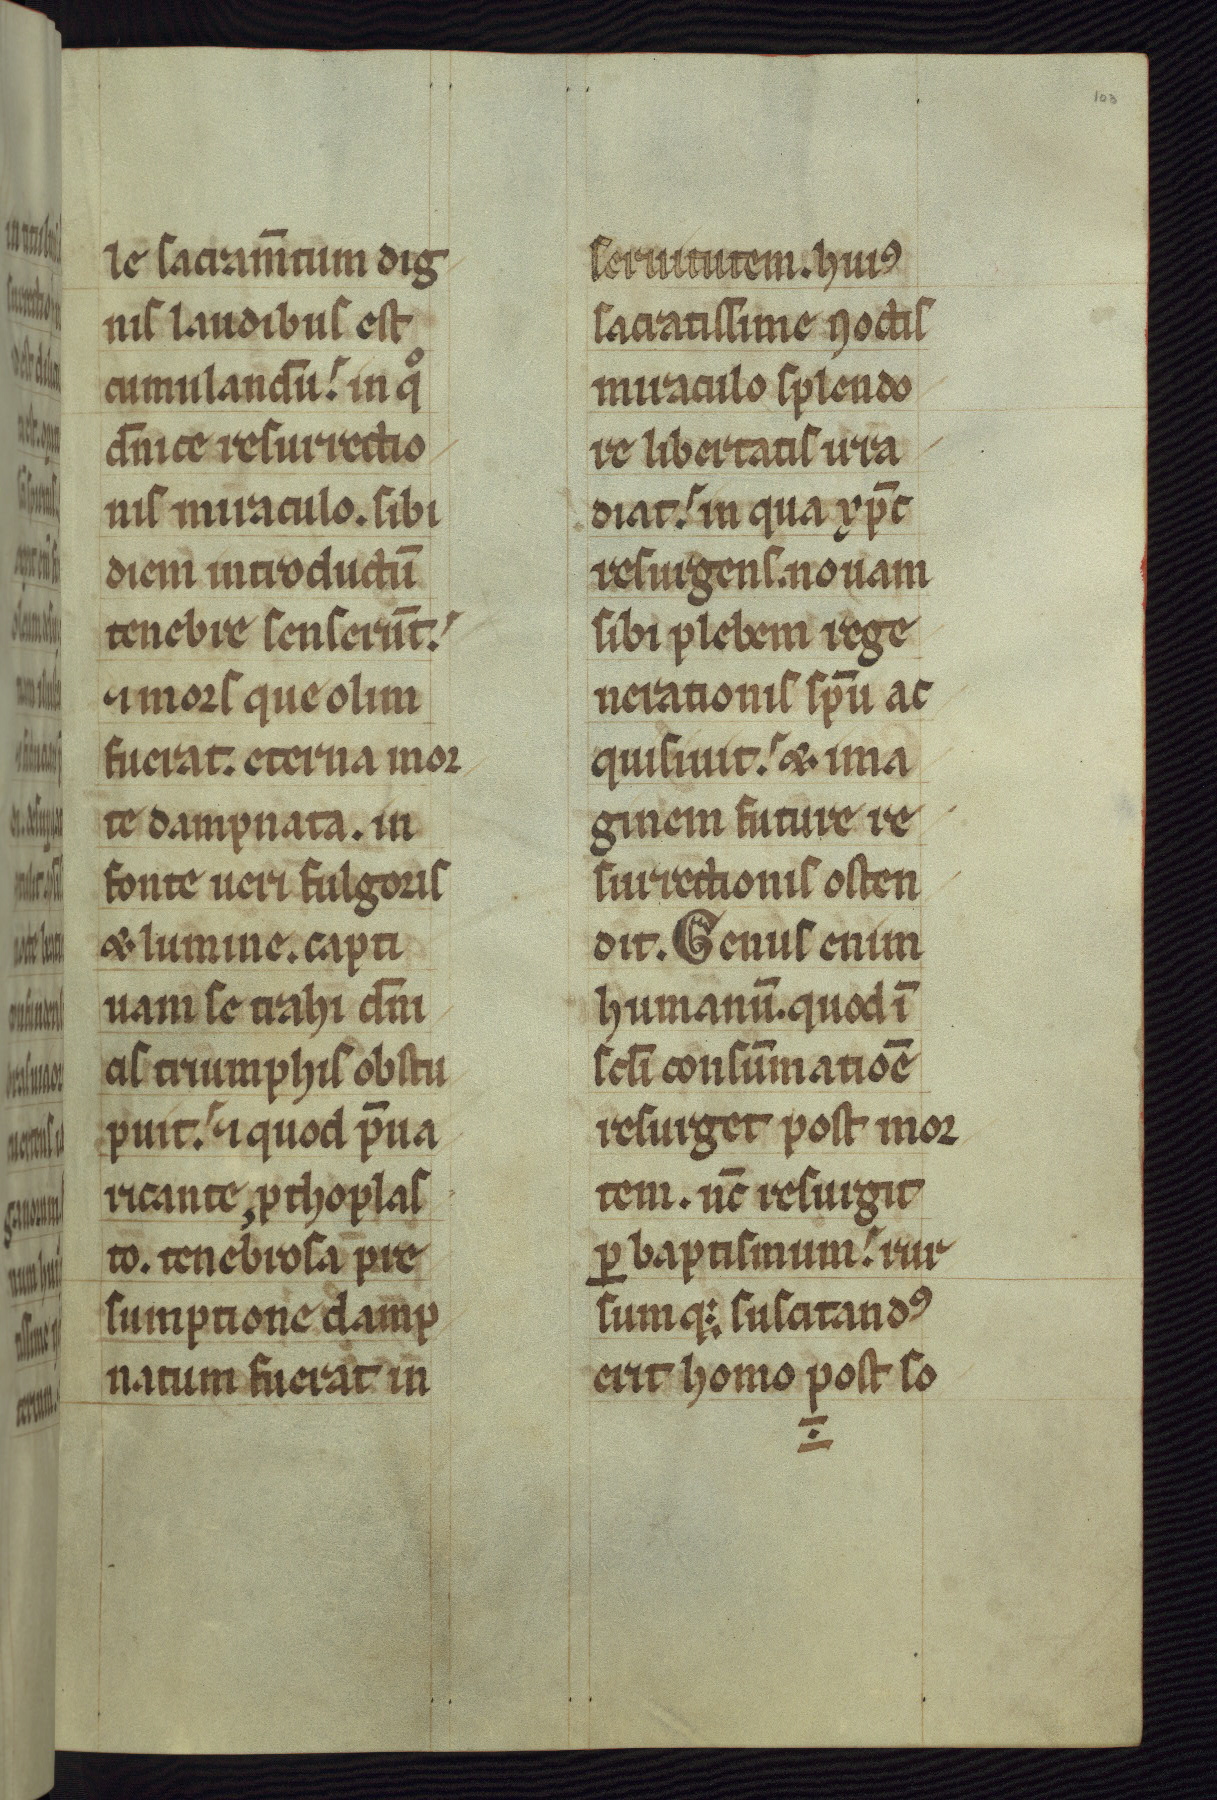 103
le sacram̅tum dig
nis laudibus est
cumulandū. in qͦ
dn̅ice resurrectio
nis miraculo. sibi
diem introductū
tenebre senserūt.
⁊ mors que olim
fuerat. eterna mor
te dampnata. in
fonte ueri fulgoris
& lumine. capti
uam se trahi dn̅i
cis triumphis obstu
puit. ⁊ quod p̅ua
ricante pthoplas
to. tenebrosa pre
sumptione damp
natum fuerat in
seruitutem. huiꝰ
sacratissime noctis
miraculo splendo
re libertatis irra
diat. in qua xp̅c
resurgens. nouam
sibi plebem rege
nerationis sp̅u ac
quisiuit. & ima
ginem future re
surrectionis osten
dit. Genus enim
humanū. quod ī
scl̅i consūmatiōe
resurget post mor
tem. nc̅ resurgit
ꝑ baptismum. rur
sumq; suscitandꝰ
erit homo post so